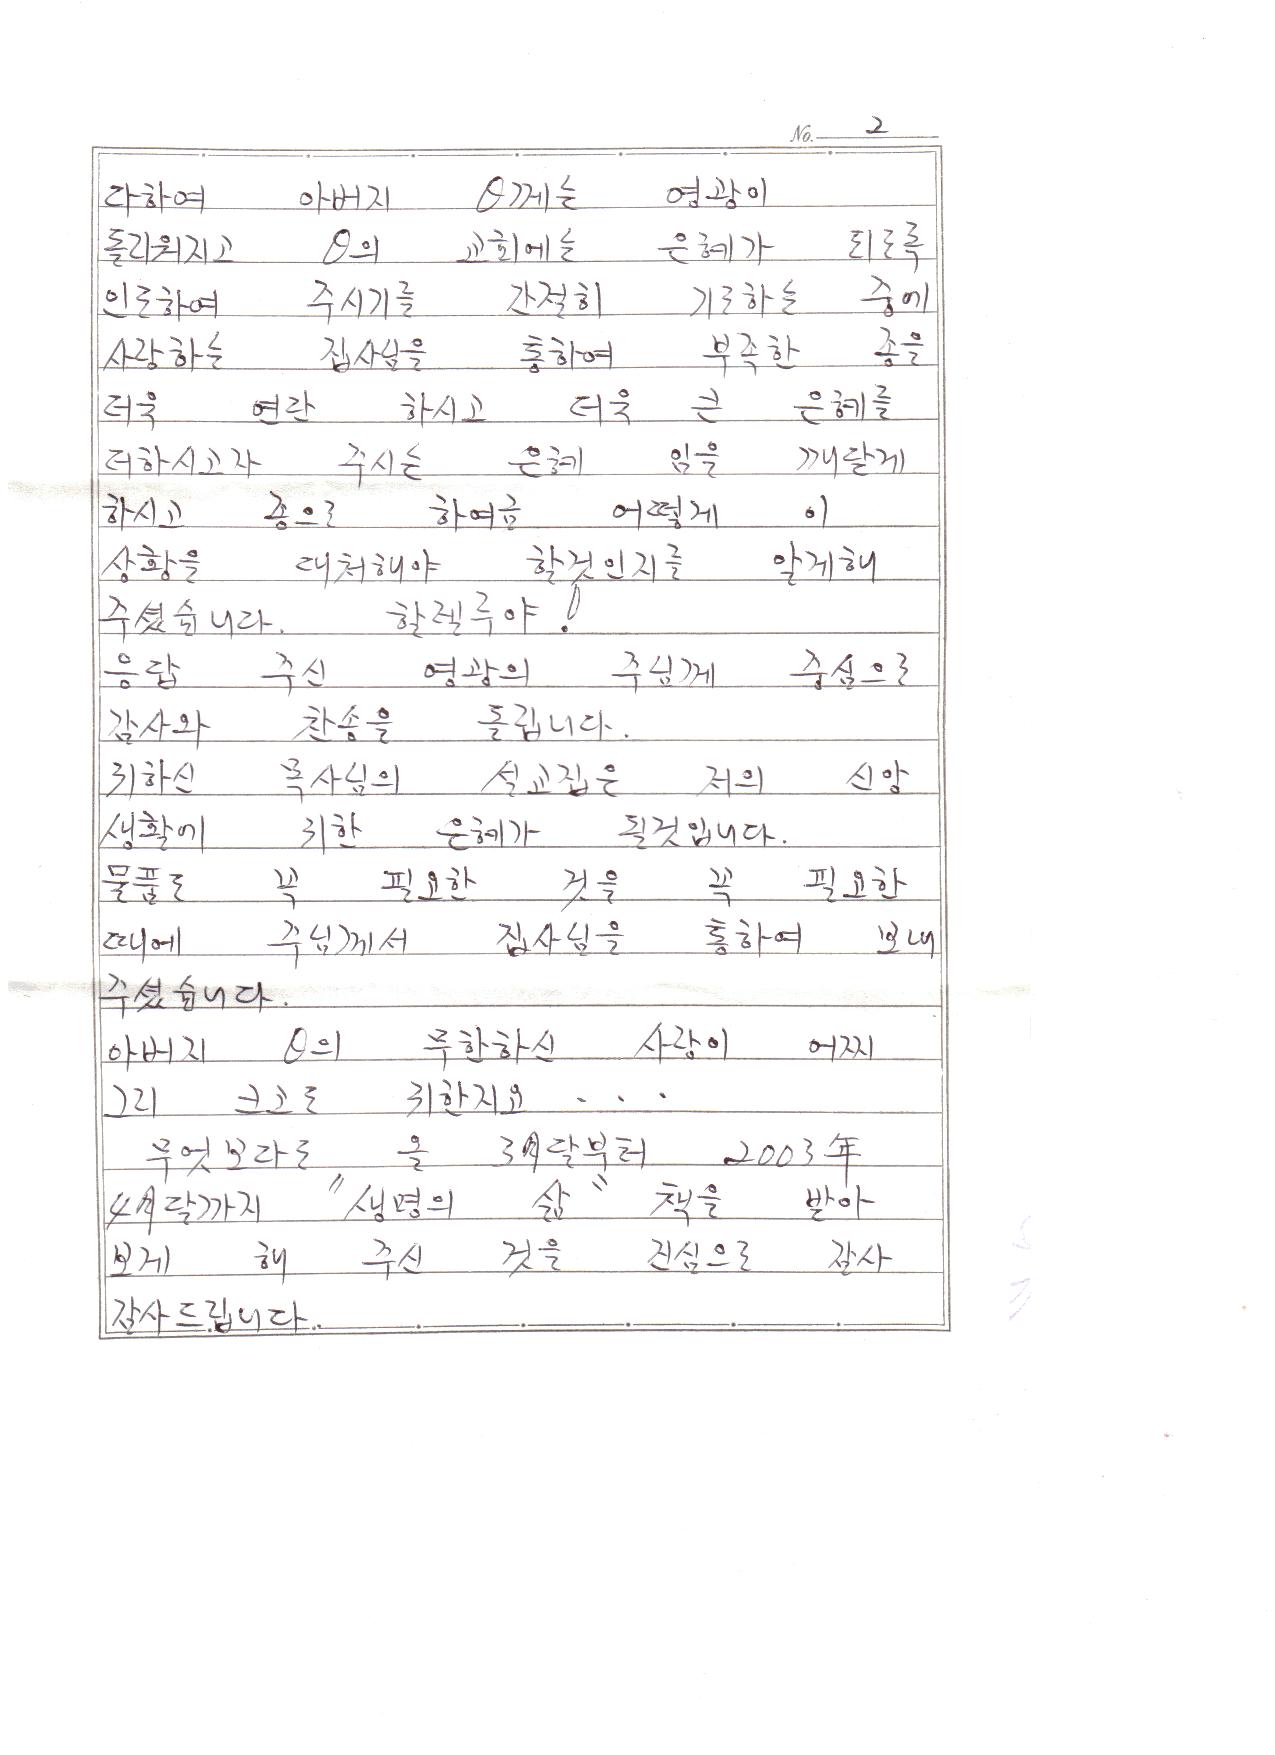 No. 2
다하여 아버지 θ께는 영광이
돌리워지고 θ의 교회에는 은혜가 되도록
인도하여 주시기를 간절히 기도하는 중에
사랑하는 집사님을 통하여 부족한 종을
더욱 연단 하시고 더욱 큰 은혜를
더하시고자 주시는 은혜 임을 깨닫게
하시고 종으로 하여금 어떻게 이
상황을 대처해야 할것인지를 알게해
주셨습니다. 할렐루야!
응답 주신 영광의 주님께 중심으로
감사와 찬송을 돌립니다.
귀하신 목사님의 설교집은 저의 신앙
생활에 귀한 은혜가 될것입니다.
물품도 꼭 필요한 것을 꼭 필요한
때에 주님께서 집사님을 통하여 보내
주셨습니다.
아버지 θ의 무한하신 사랑이 어찌
그리 크고도 귀한지요 . . .
무엇보다도 올 3月달부터 2003年
4月달까지 "생명의 삶" 책을 받아
보게 해 주신 것을 진심으로 감사
감사드립니다.